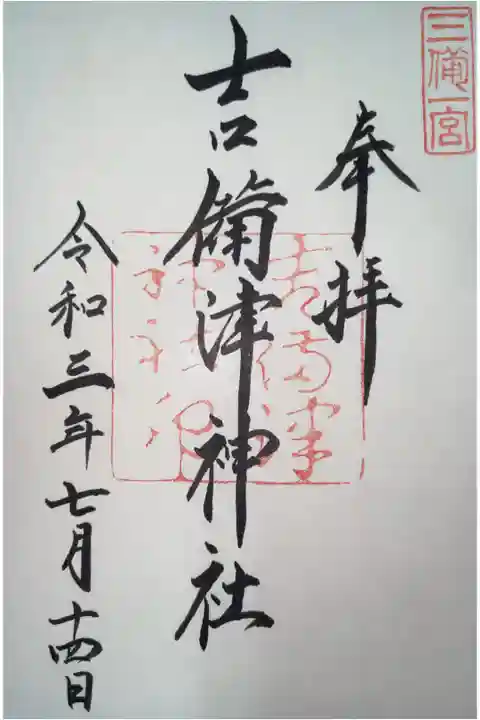 三備一宮
奉拝
吉備津神社
令和三年七月十四日